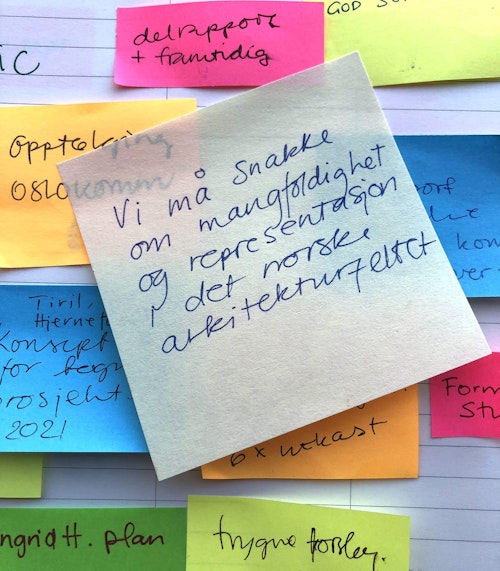 GOD
delrapport
+ framtidig
Opptelging
Oslokomm
Vi må snakke
om mangfoldighet
og representasjon
i det norske
arkitekturfeltet
Tiril,
Konsept
for
prosjekt
2021
Form
Stu
6x utkast
ngrid H. plan
trygve